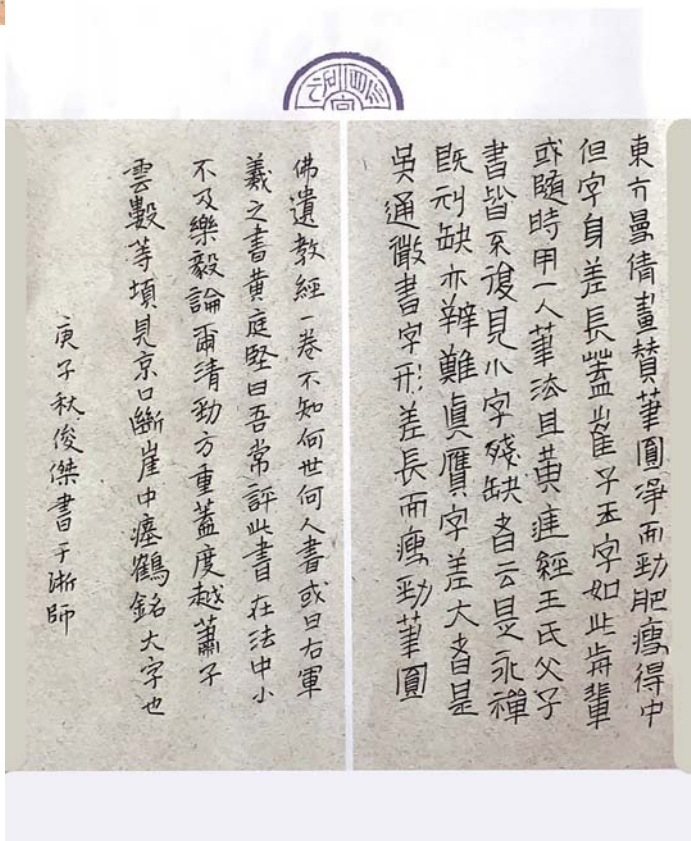 東方曼倩畫贊筆圓淨而勁肥瘦得中
但字身差長蓋崔子玉字如此前輩
或隨時用一人筆法且黄庭經王氏父子
書皆不復見小字殘缺者云是永禪
既刓缺亦難辨真贋字差大者是
吳通微書字形差長而瘦勁筆圓
佛遺教經一卷不知何世何人書或曰右軍
羲之書黄庭堅曰吾常評此書在法中小
不及樂毅論爾清勁方重蓋度越蕭子
雲數等頃見京口斷崖中瘞鶴銘大字也
庚子秋俊傑書于浙師